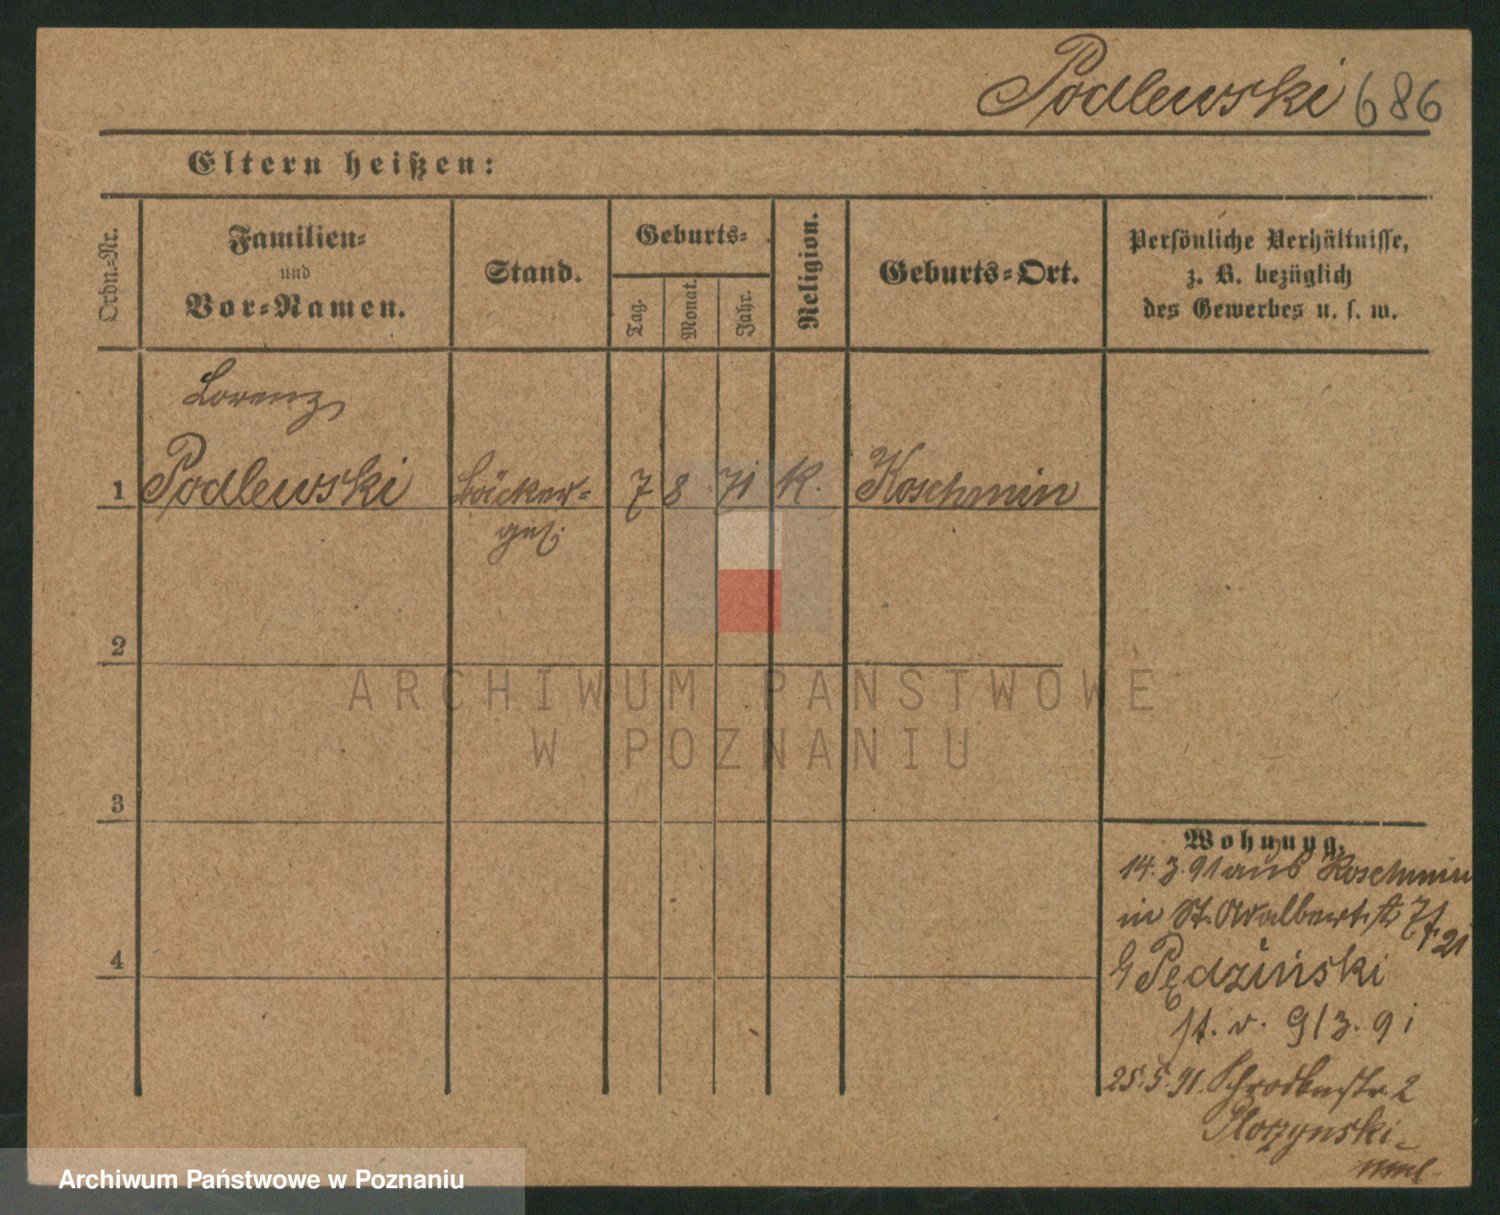 Podlewski 686
Eltern heißen:
Ordn.-Nr.
Familien-
und
Vor-Namen.
Stand.
Geburts-
Tag.
Monat.
Jahr.
Religion.
Geburts-Ort.
Persönliche Verhältnisse,
z. B. bezüglich
des Gewerbes u. s. w.
Lorenz
1 Podlewski Bäcker- 7 8 71 K. Koschmin
ges.
2
3
4
Wohnung.
14.3.91 aus Koschmin
in St. Adalbertstr 7
21
Pędziński
st. v. 9/3. 91
25.5.91. Schrodkastr 2
Ploszynski
ARCHIWUM PAŃSTWOWE
W POZNANIU
Archiwum Państwowe w Poznaniu